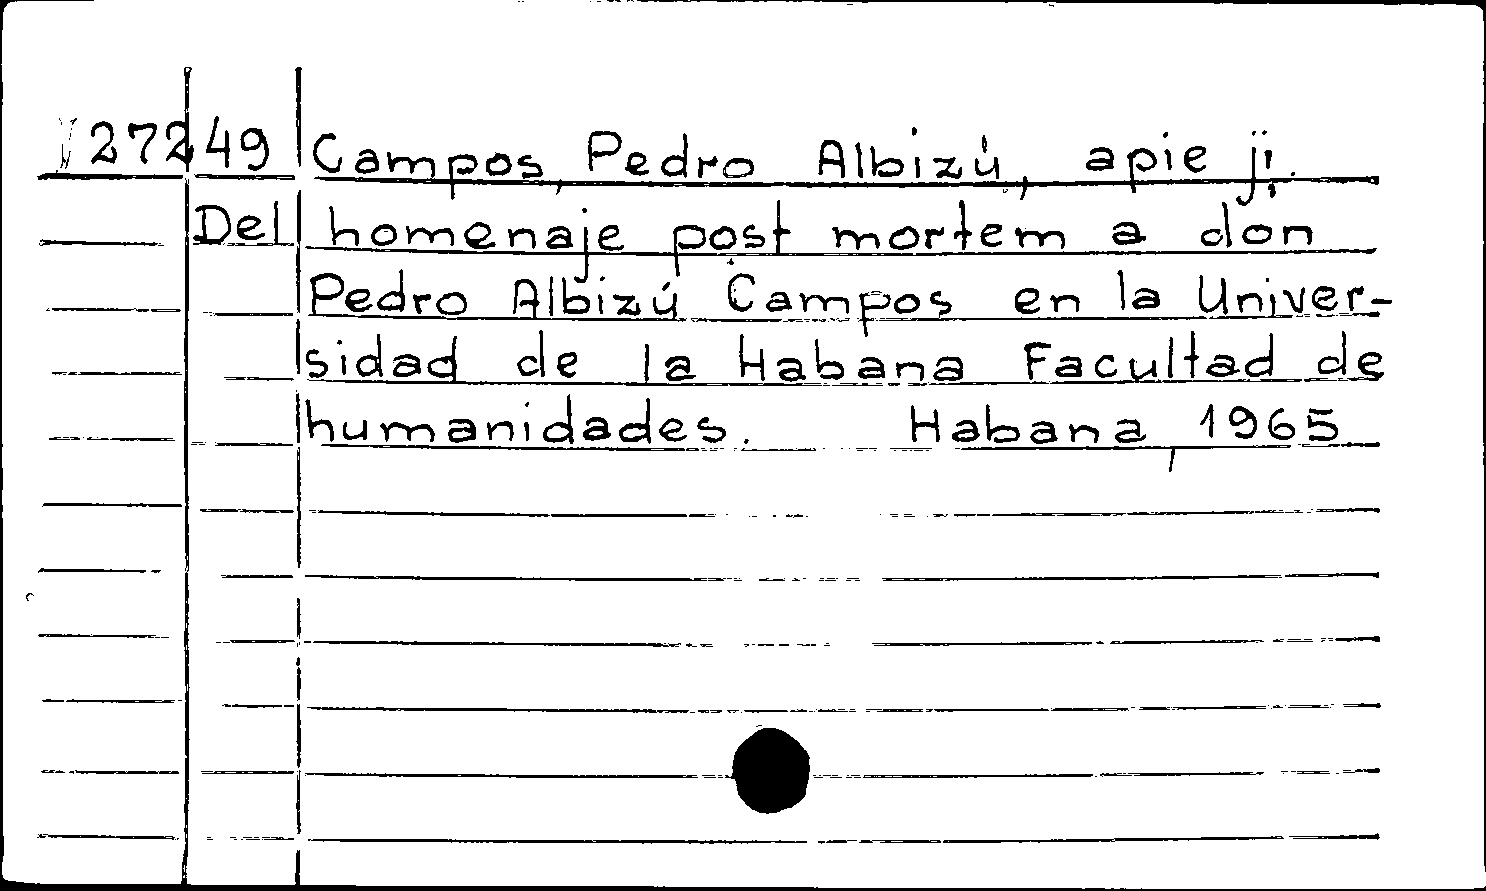 27249 Campos, Pedro Albizú, apie jį.
Del homenaje post mortem a don
Pedro Albizú Campos en la Univer-
sidad de la Habana Facultad de
humanidades. Habana, 1965